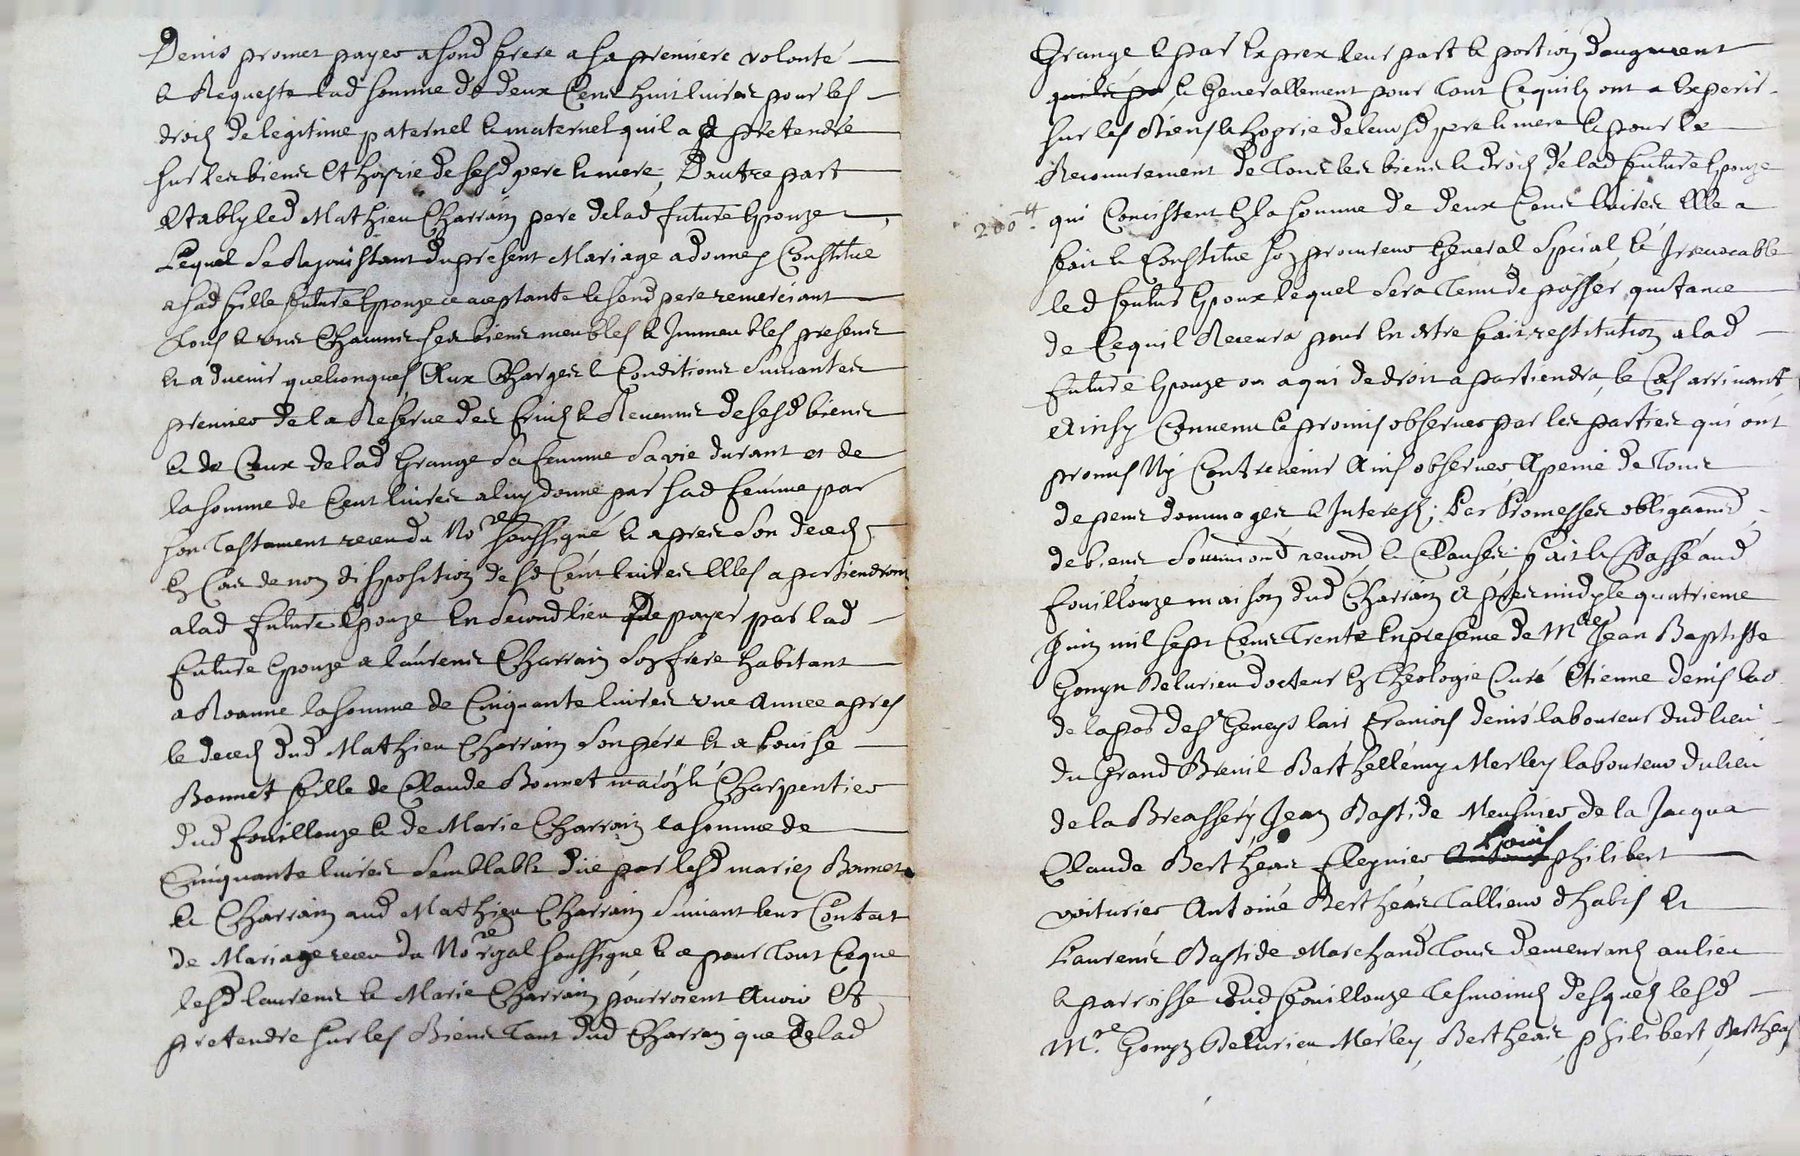 Denis promet payer a sond frere a sa premiere volonté
& Requeste lad somme de deux Cens huit livres pour les
droits de legitime paternel & maternel quil a à pretendre
sur les biens Et hoyrie de sesd pere & mere, Dautre part
Etably led Mathieu Charrain pere de lad future Epouze
Lequel se Rejouissant du present Mariage a donné & Constitué
a sad fille future Epouze acceptante & sond pere remerciant
Tous & uns Chacuns ses biens meubles & Immeubles presens
Et a venir quelconques Aux Charges & Conditions Suivantes
premier de la Reserve des fruits & Revenus de sesd biens
& de Ceux de lad Grange Sa femme Sa vie durant et de
la somme de Cent livres a luy donné par sad femme par
son Testament receu du Nore soussigné & apres Son deced
En Cas de non disposition desd Cent livres Elles apartiendront
a lad future Epouze En Second lieu de payer par lad
future Epouze a laurens Charrain Son frere habitant
a Roanne la somme de Cinquante livres une Annee apres
le deced dud Mathieu Charrain Son pére Et a Louise
Bonnet fille de Claude Bonnet maison & Charpentier
dud fouillouze & de Marie Charrain la somme de
Cinquante livres Semblable düe par lesd mariez Bonnet
& Charrain aud Mathieu Charrain Suivant leur Contrat
de Mariage receu du Nore royal soussigné & ce pour Tout Ce que
lesd laurens & Marie Charrain pourroient Avoir Et
pretendre sur les Biens Tant dud Charrain que de lad
Grange & par Exprex leur part & portion daugment
& Generallement pour Tout Ce quils ont a Experer
sur les Biens & hoyrie de leursd pere & mere & pour le
Recouvrement de Tous les biens & droits de lad future Epouze
200 ₶ qui Concistent En la somme de deux Cens livres Elle a
fait & Constitué son procureur General Special, & Irrevocable
led futur Epoux lequel Sera Tenu de passer quittance
de Ce quil Recevra pour En Etre fait restitution a lad
future Epouze ou a qui de droit apartiendra, le Cas arrivant
Ainsy Convenu & promis observer par les parties qui ont
promis Ny Contrevenir Ains observer A peine de Tous
depens dommages & Interests; Par Promesses obligaond
de biens Soumiond renond & Clauses; fait & Passé aud
fouillouze maison dud Charrain Apres midy le quatrieme
Juin mil sept Cens Trente En presence de Mre Jean Baptiste
Gonyn Delurieu docteur En Theologie Curé Etienne denis lab
de la par de st Geneys lair francois denis laboureur dud lieu
du Grand Breuil Barthellémy Merley laboureur du lieu
de la Breassery Jean Bastide Meusnier de la Jacqua
Claude Bertheas Clegnier Louis philibert
voiturier Antoine Bertheas Tallieur dhabis Et
Laurens Bastide Marchand Tous demeurants au lieu
& parroisse dud fouillouze Tesmoins desquels lesd
Mre Gonyn Delurieu Merley, Bertheas, philibert, Bertheas